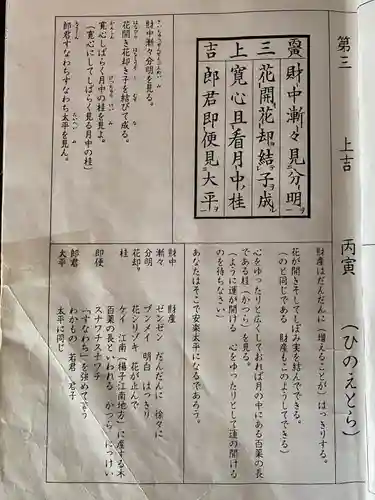 第三　上吉　丙寅（ひのえとら）
靈 財中漸々見分明
三 花開花却結子成
上 寛心且看月中桂
吉 郎君即便見大平
財中漸々分明を見る。
花開き花却き子を結びて成る。
寛心しばらく月中の桂を見よ。
（寛心にしてしばらく見る月中の桂）
郎君すなわちすなわち太平を見ん。
財産はだんだんに（増えることが）はっきりする。
花が開きそしてしぼみ実を結んでできる。
（のと同じである　財産もこのようしてできる）
心をゆったりと広くしておれば月の中にある百薬の長
である桂（かつら）を見る。
（ように運が開ける　心をゆったりとして運の開ける
のを待ちなさい）
あなたはそこで安楽太平になるであろう。
財中　財産
漸々　ゼンゼン　だんだんに　徐々に
分明　ブンメイ　明白　はっきり
花却　花シリゾキ　花が止んで
桂　ケイ　江南（揚子江南地方）に産する木
百薬の長といわれる　かつら　につけい
即便　スナワチスナワチ
「すなわち」を強めて言う
郎君　わかもの　若君　君子
大平　太平に同じ